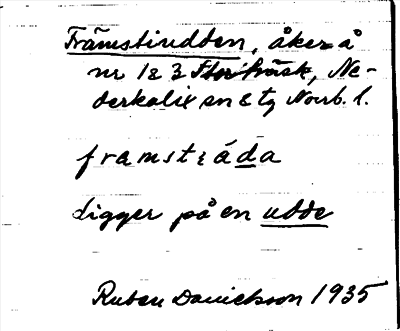 Främstuddten, åker å
nr 1 & 3 Storträsk, Ne-
derkalix sn & tg Norrb. l.
framstɩáda
ligger på en udde
Ruben Danielsson 1935